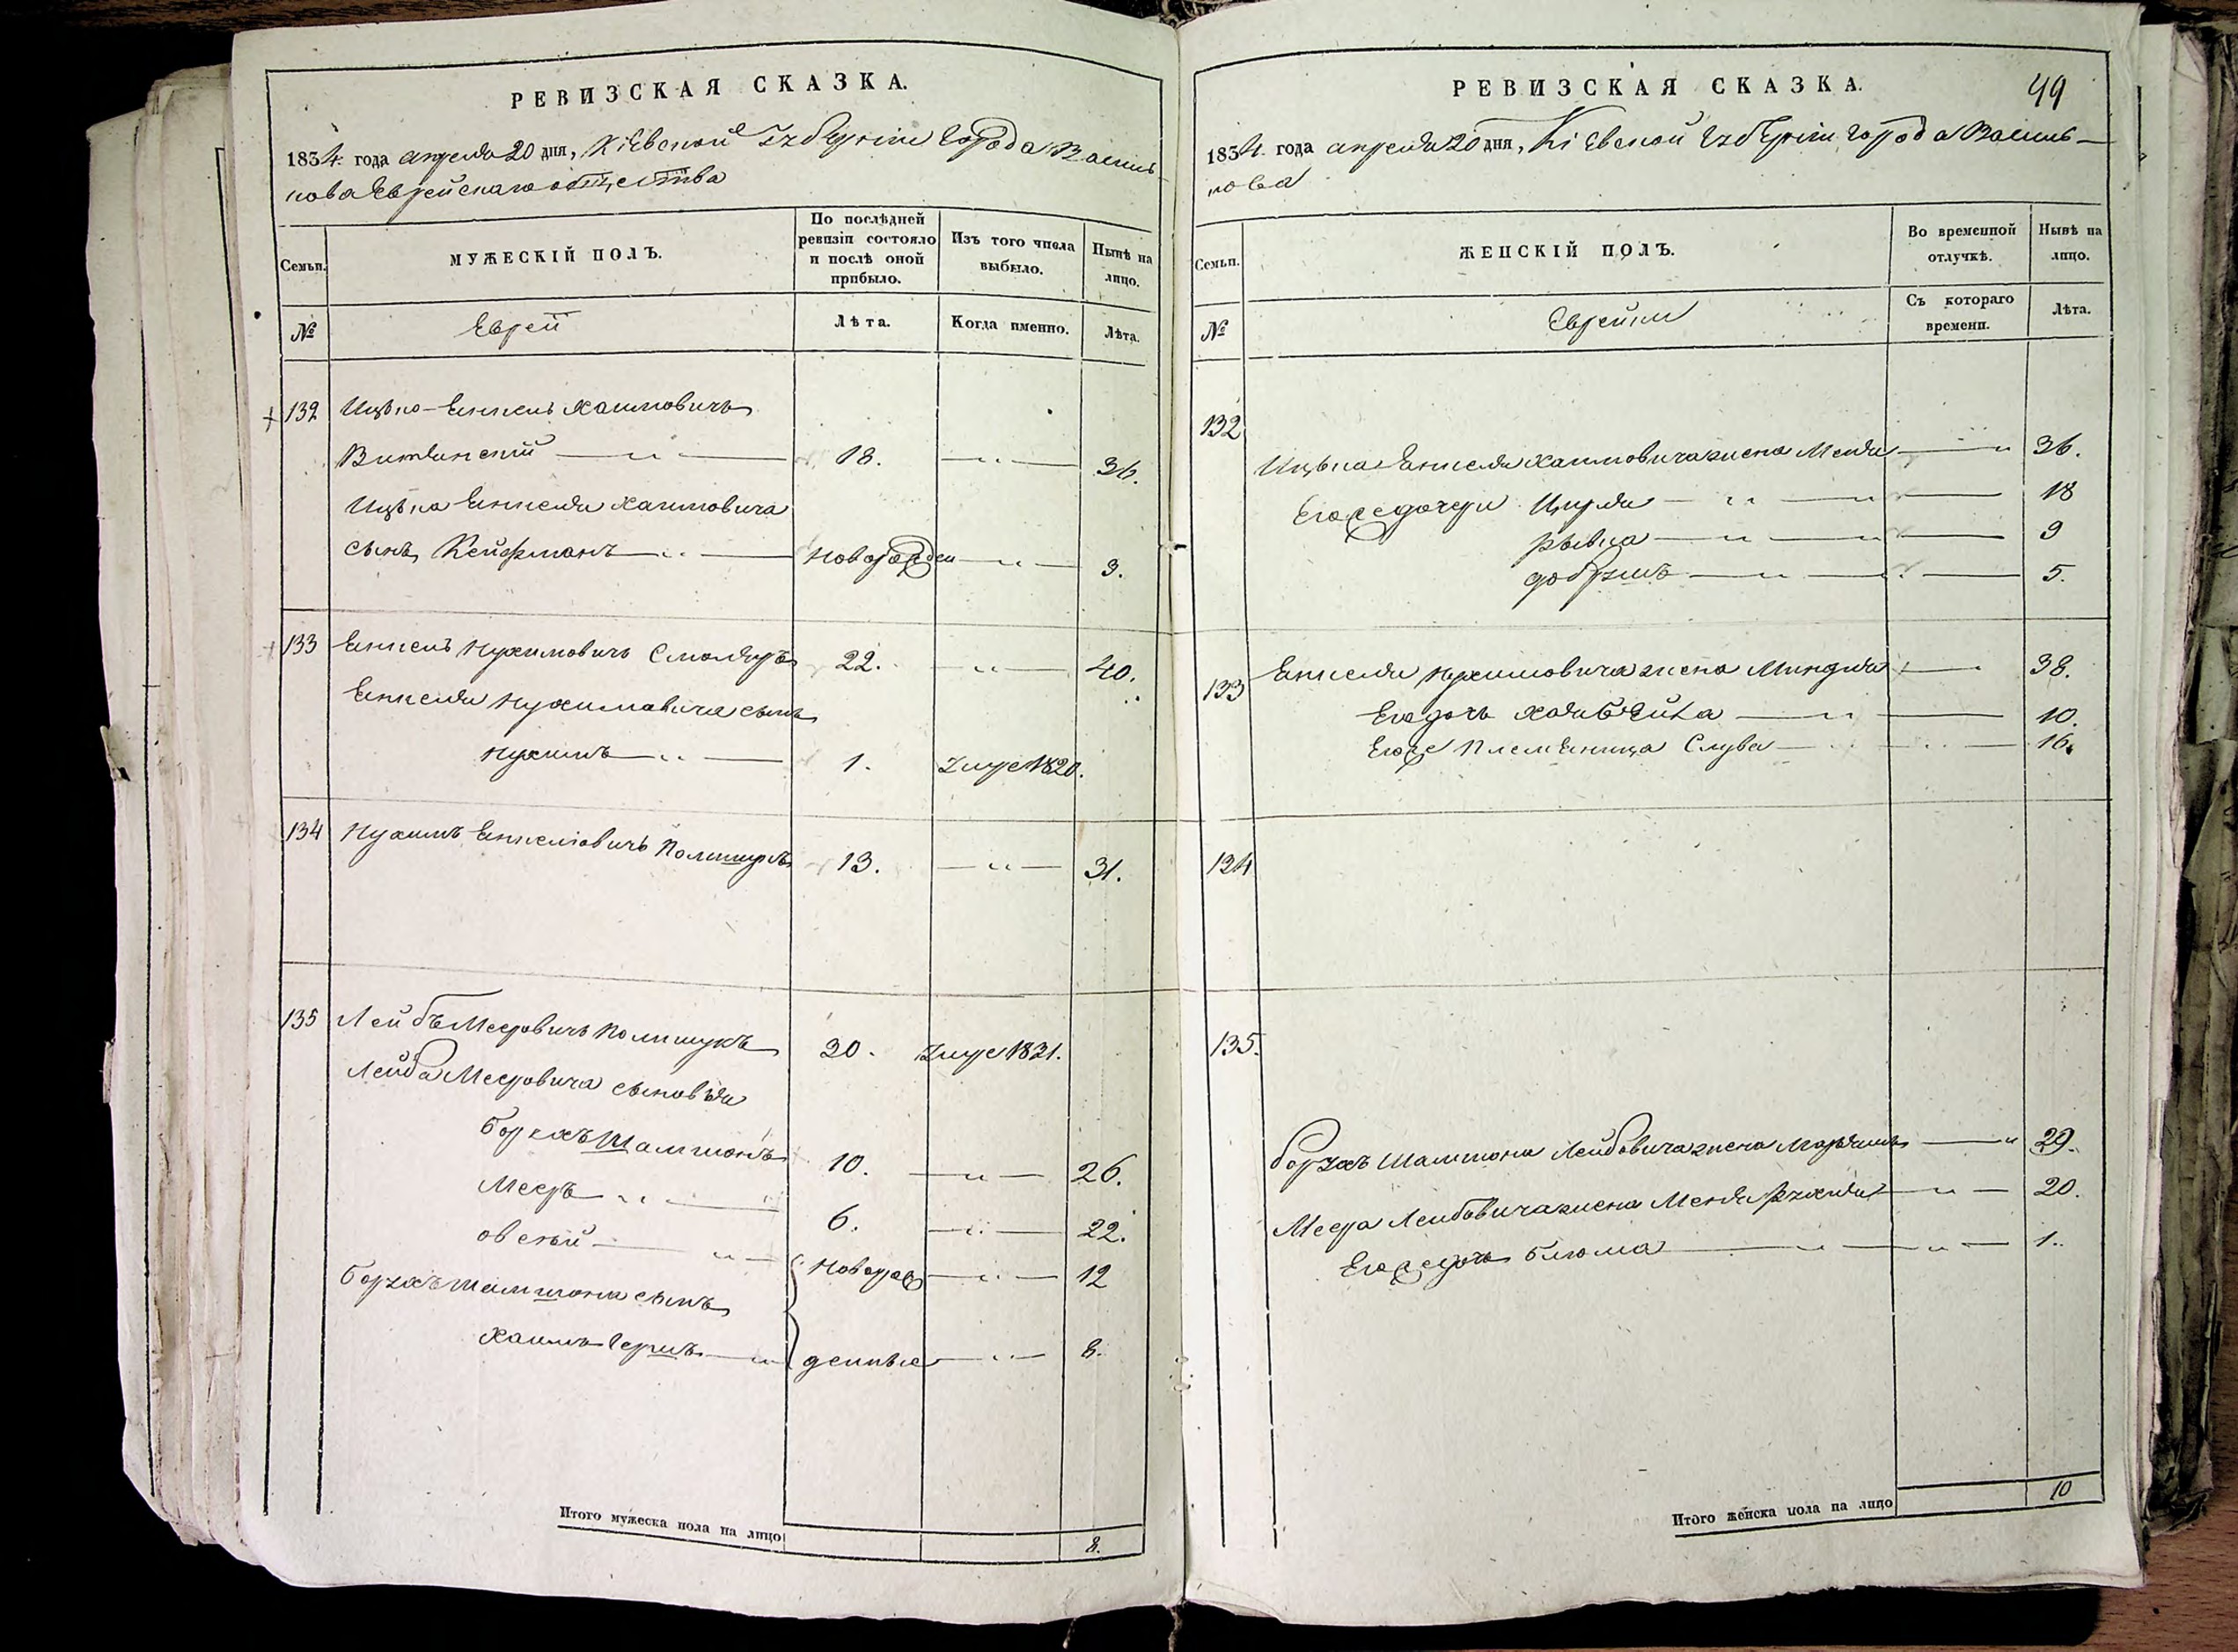 РЕВИЗСКАЯ СКАЗКА.
1834 года апреля 20 дня, Кіевской Губерніи Города Василь-
кова Еврейскаго общества
Семьи.
МУЖЕСКІЙ ПОЛЪ.
По послѣдней ревизіи состояло и послѣ оной прибыло.
Изъ того числа выбыло.
Нынѣ на лицо.
№
Еврей
Лѣта.
Когда именно.
Лѣта.
132 Ицько-Енкель Хаимовичъ
18. 36.
Ицька Енкеля Хаимовича
сынъ Кейфманъ новорожден 3.
133 Енкель Нухимовичъ Смоляръ 22. 40.
Енкеля Нухимовича сынъ
Нухимъ 1. 1820.
134 Нухимъ Енкелiовичъ Полишукъ 13. 31.
135 Лейбъ Мееровичъ Полишукъ 20. 1831.
Лейба Мееровича сыновья
Борхъ Шамшонъ 10. 26.
Мееръ 6. 22.
Овсѣй новорож 12
Борхъ Шамшона сынъ
Хаимъ Гершъ денные 8.
Итого мужеска пола на лицо 8.
РЕВИЗСКАЯ СКАЗКА.
49
1834 года апреля 20 дня, Кіевской Губерніи, города Василь-
кова
Семьи.
ЖЕНСКІЙ ПОЛЪ.
Во временной отлучкѣ.
Нынѣ на лицо.
№
Еврейки
Съ котораго времени.
Лѣта.
132
Ицька Енкеля Хаимовича жена Меня 36.
Его же дочери Цирля 18
Рывка 9
Добришъ 5.
133 Енкеля Нухимовича жена Миндля 38.
Его дочь Хая Бейла 10.
Его же племеница Слува 16.
134
135.
Борхъ Шамшона Лейбовича жена Марьямъ 29.
Меера Лейбовича жена Меня Рухля 20.
Его же дочь Блюма 1.
Итого женска пола на лицо 10